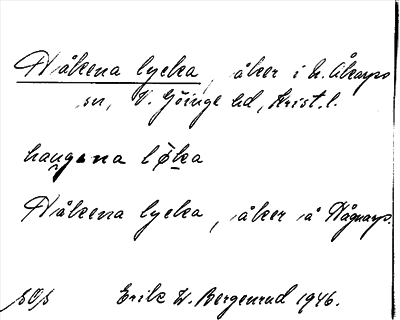 Håkena lycka, åker i N. Åkarps
sn, V. Göinge hd, Krist. l.
haugena løka
Håkena lycka, åker å Hågnarp.
Erik W. Bergenrud 1946.